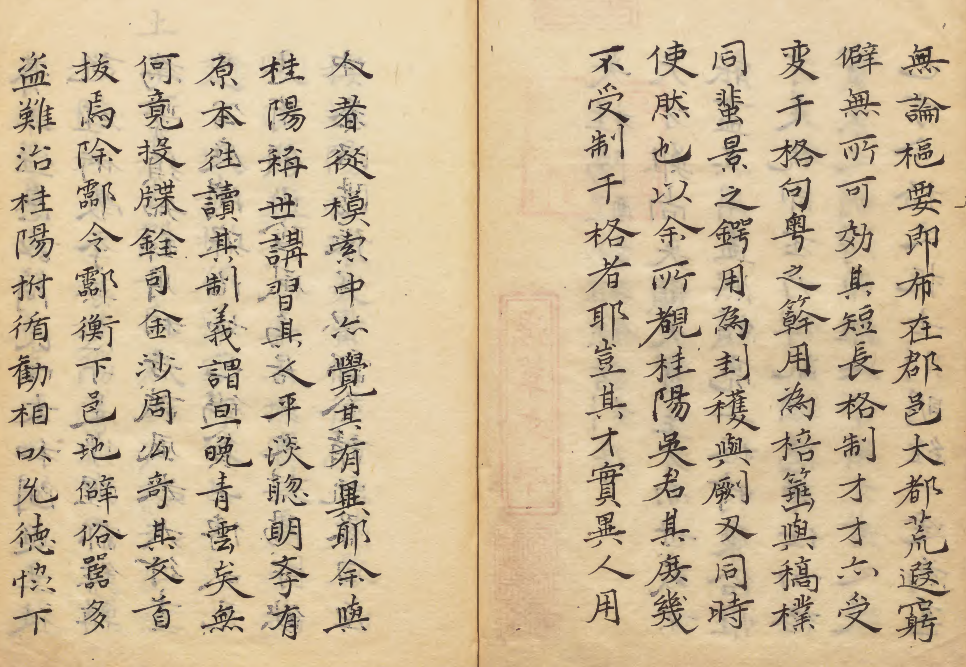 無論樞要即布在郡邑大都荒遐窮
僻無所可効其短長格制才才亦受
变于格句粤之簳用為棓箠與稿檏
同蜚景之鍔用為刲穫與劂刃同時
使然也以余所覩桂陽吳君其庻幾
不受制于格者耶豈其才實異人用
人者從模索中亦覺其有異耶余與
桂陽稱世講習其人平淡聦明夲有
原本徃讀其制義謂旦晚青雲矣無
何竟投牒銓司金沙周公奇其文首
抜焉除酃令酃衡下邑地僻俗嚚多
盗難治桂陽拊循勸相以先徳惊下